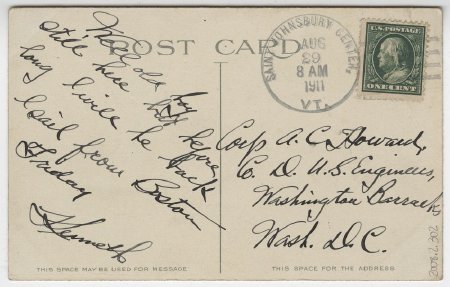 POST CARD
Well old boy
still here but before
long I will be back
I sail from Boston
Friday
Kenneth
THIS SPACE MAY BE USED FOR MESSAGE
SAINT JOHNSBURY CENTER,
AUG
29
8 AM
1911
VT.
U.S. POSTAGE
ONE CENT
Corp A. C. Howard,
Co. D. U.S. Engineers,
Washington Barracks
Wash. D.C.
THIS SPACE IS FOR THE ADDRESS